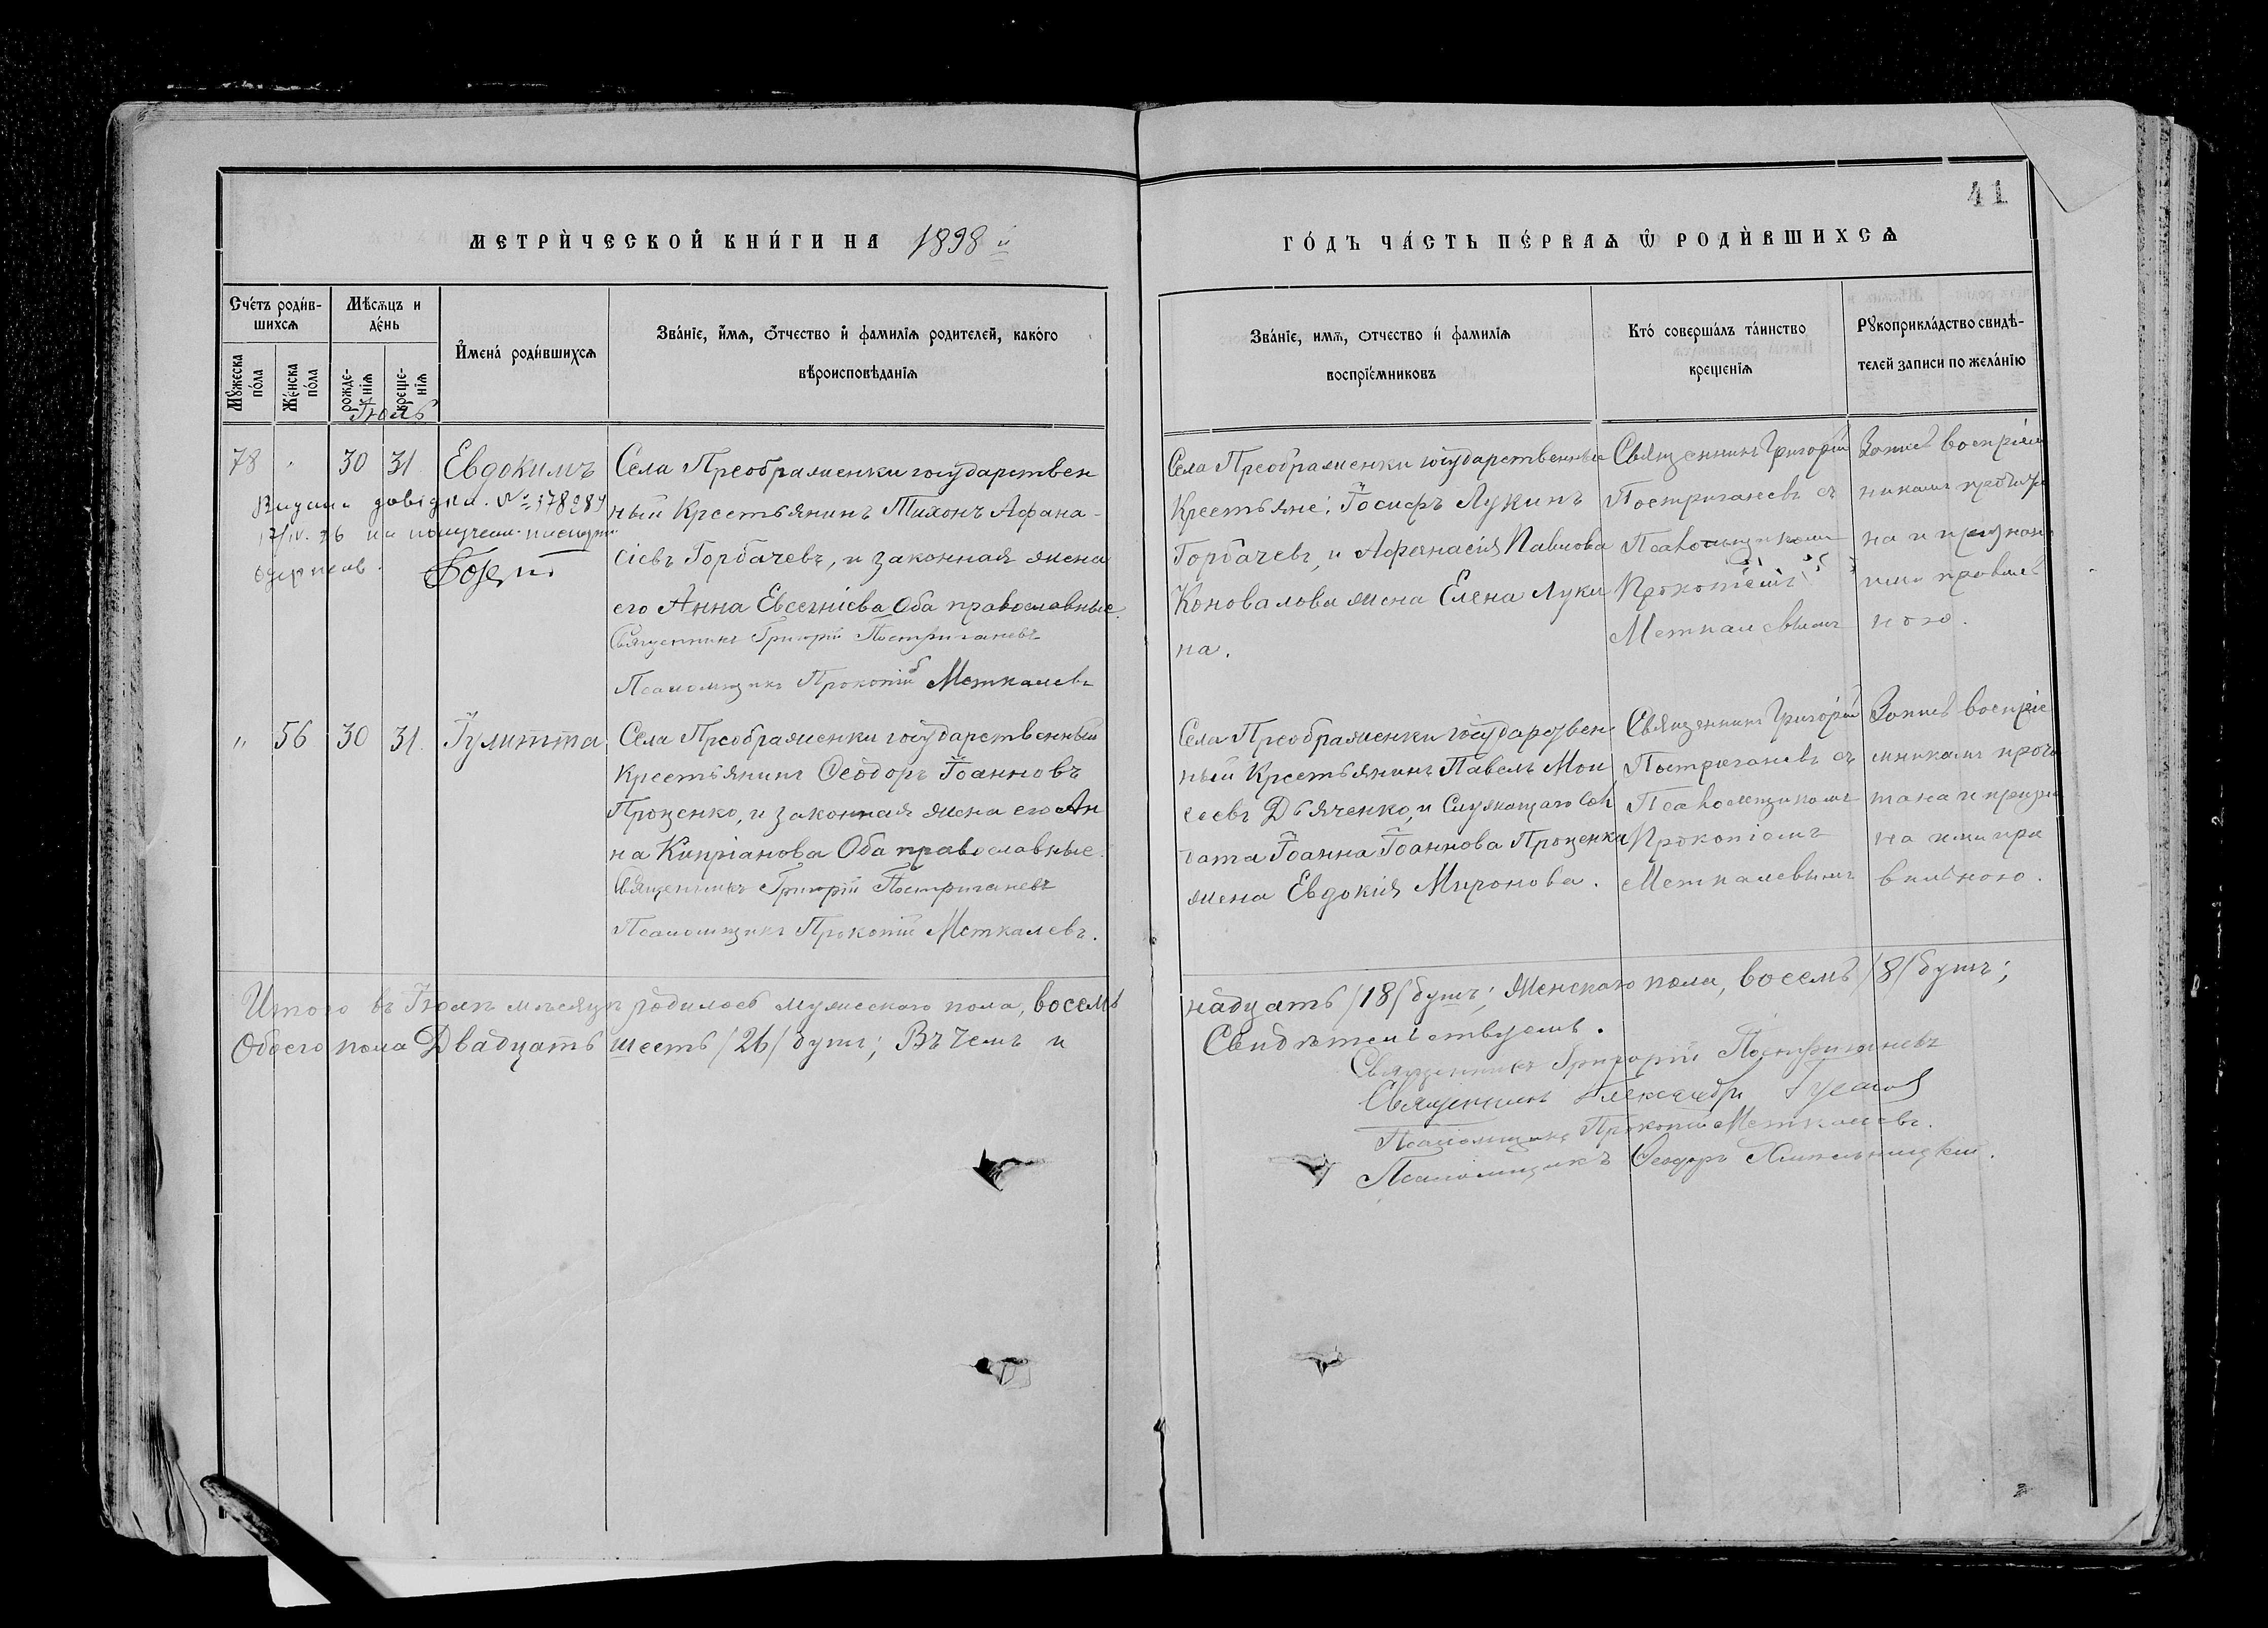 41
МЕТРИ́ЧЕСКОЙ КНИ́ГИ НА 1898 й
ГО́ДЪ ЧА́СТЬ ПЕ́РВАѦ Ѿ РОДИ́ВШИХСѦ
Сче́тъ роди́в-
шихсѧ
Мꙋ́жеска
по́ла
Же́нска
по́ла
Мѣ́сѧцъ и
де́нь
рожде-
нїѧ
креще-
нїѧ
Іюль
И҆мена́ роди́вшихсѧ
Зва́нїе, и҆́мѧ, ѻ҆́тчество и҆ фамилїѧ родителей, како́го
вѣроисповѣданїѧ
Зва́нїе, имѧ, ѻтчество и҆ фамилїѧ
воспрїе́мниковъ
Кто́ соверша́лъ та́инство
креще́нїѧ
Рꙋкоприкла́дство свидѣ́-
телей записи по жела́нїю
78 " 30 31 Евдокимъ
Села Преображенки государствен
ный Крестьянинъ Тихонъ Афана-
сіевъ Горбачевъ, и законная жена
его Анна Евсегніева Оба православные
Священникъ Григорій Постриганевъ
Псаломщикъ Прокопій Меткалевъ
довідка № 178284
Села Преображенки государственные
Крестьяне: Іосифъ Лукинъ
Горбачевъ, и Афанасія Павлова
Коновалова жена Елена Луки
на.
Священникъ Григорій
Постриганевъ съ
Псаломщикомъ
Прокопіемъ
Меткалевымъ
Запись воспріем
никамъ прочита
на и признан
ими правиль
ною.
" 56 30 31. Іулитта
Села Преображенки государственный
Крестьянинъ Ѳеодоръ Іоанновъ
Проценко, и законная жена его Ан
на Кипріанова Оба православные.
Священникъ Григорій Постриганевъ
Псаломщикъ Прокопій Меткалевъ.
Села Преображенки государствен
ный Крестьянинъ Павелъ Мои
сеевъ Дьяченко, и Служащаго Сол
дата Іоанна Іоаннова Проценка
жена Евдокія Миронова.
Священникъ Григорій
Постриганевъ съ
Псаломщикомъ
Прокопіемъ
Меткалевымъ
Запись воспріе
мникамъ прочи
тана и призна
на ими пра
вильною.
Итого въ Іюлѣ мѣсяцѣ родилось мужескаго пола, восемь
надцать /18/ душъ; Женскаго пола, восемь /8/ душъ;
Обоего пола Двадцать шесть /26/ душъ; Въ чемъ и
Свидѣтельствуемъ.
Священникъ Григорій Постриганевъ
Священникъ Александръ
Псаломщикъ Прокопій Меткалевъ.
Псаломщикъ Ѳеодоръ